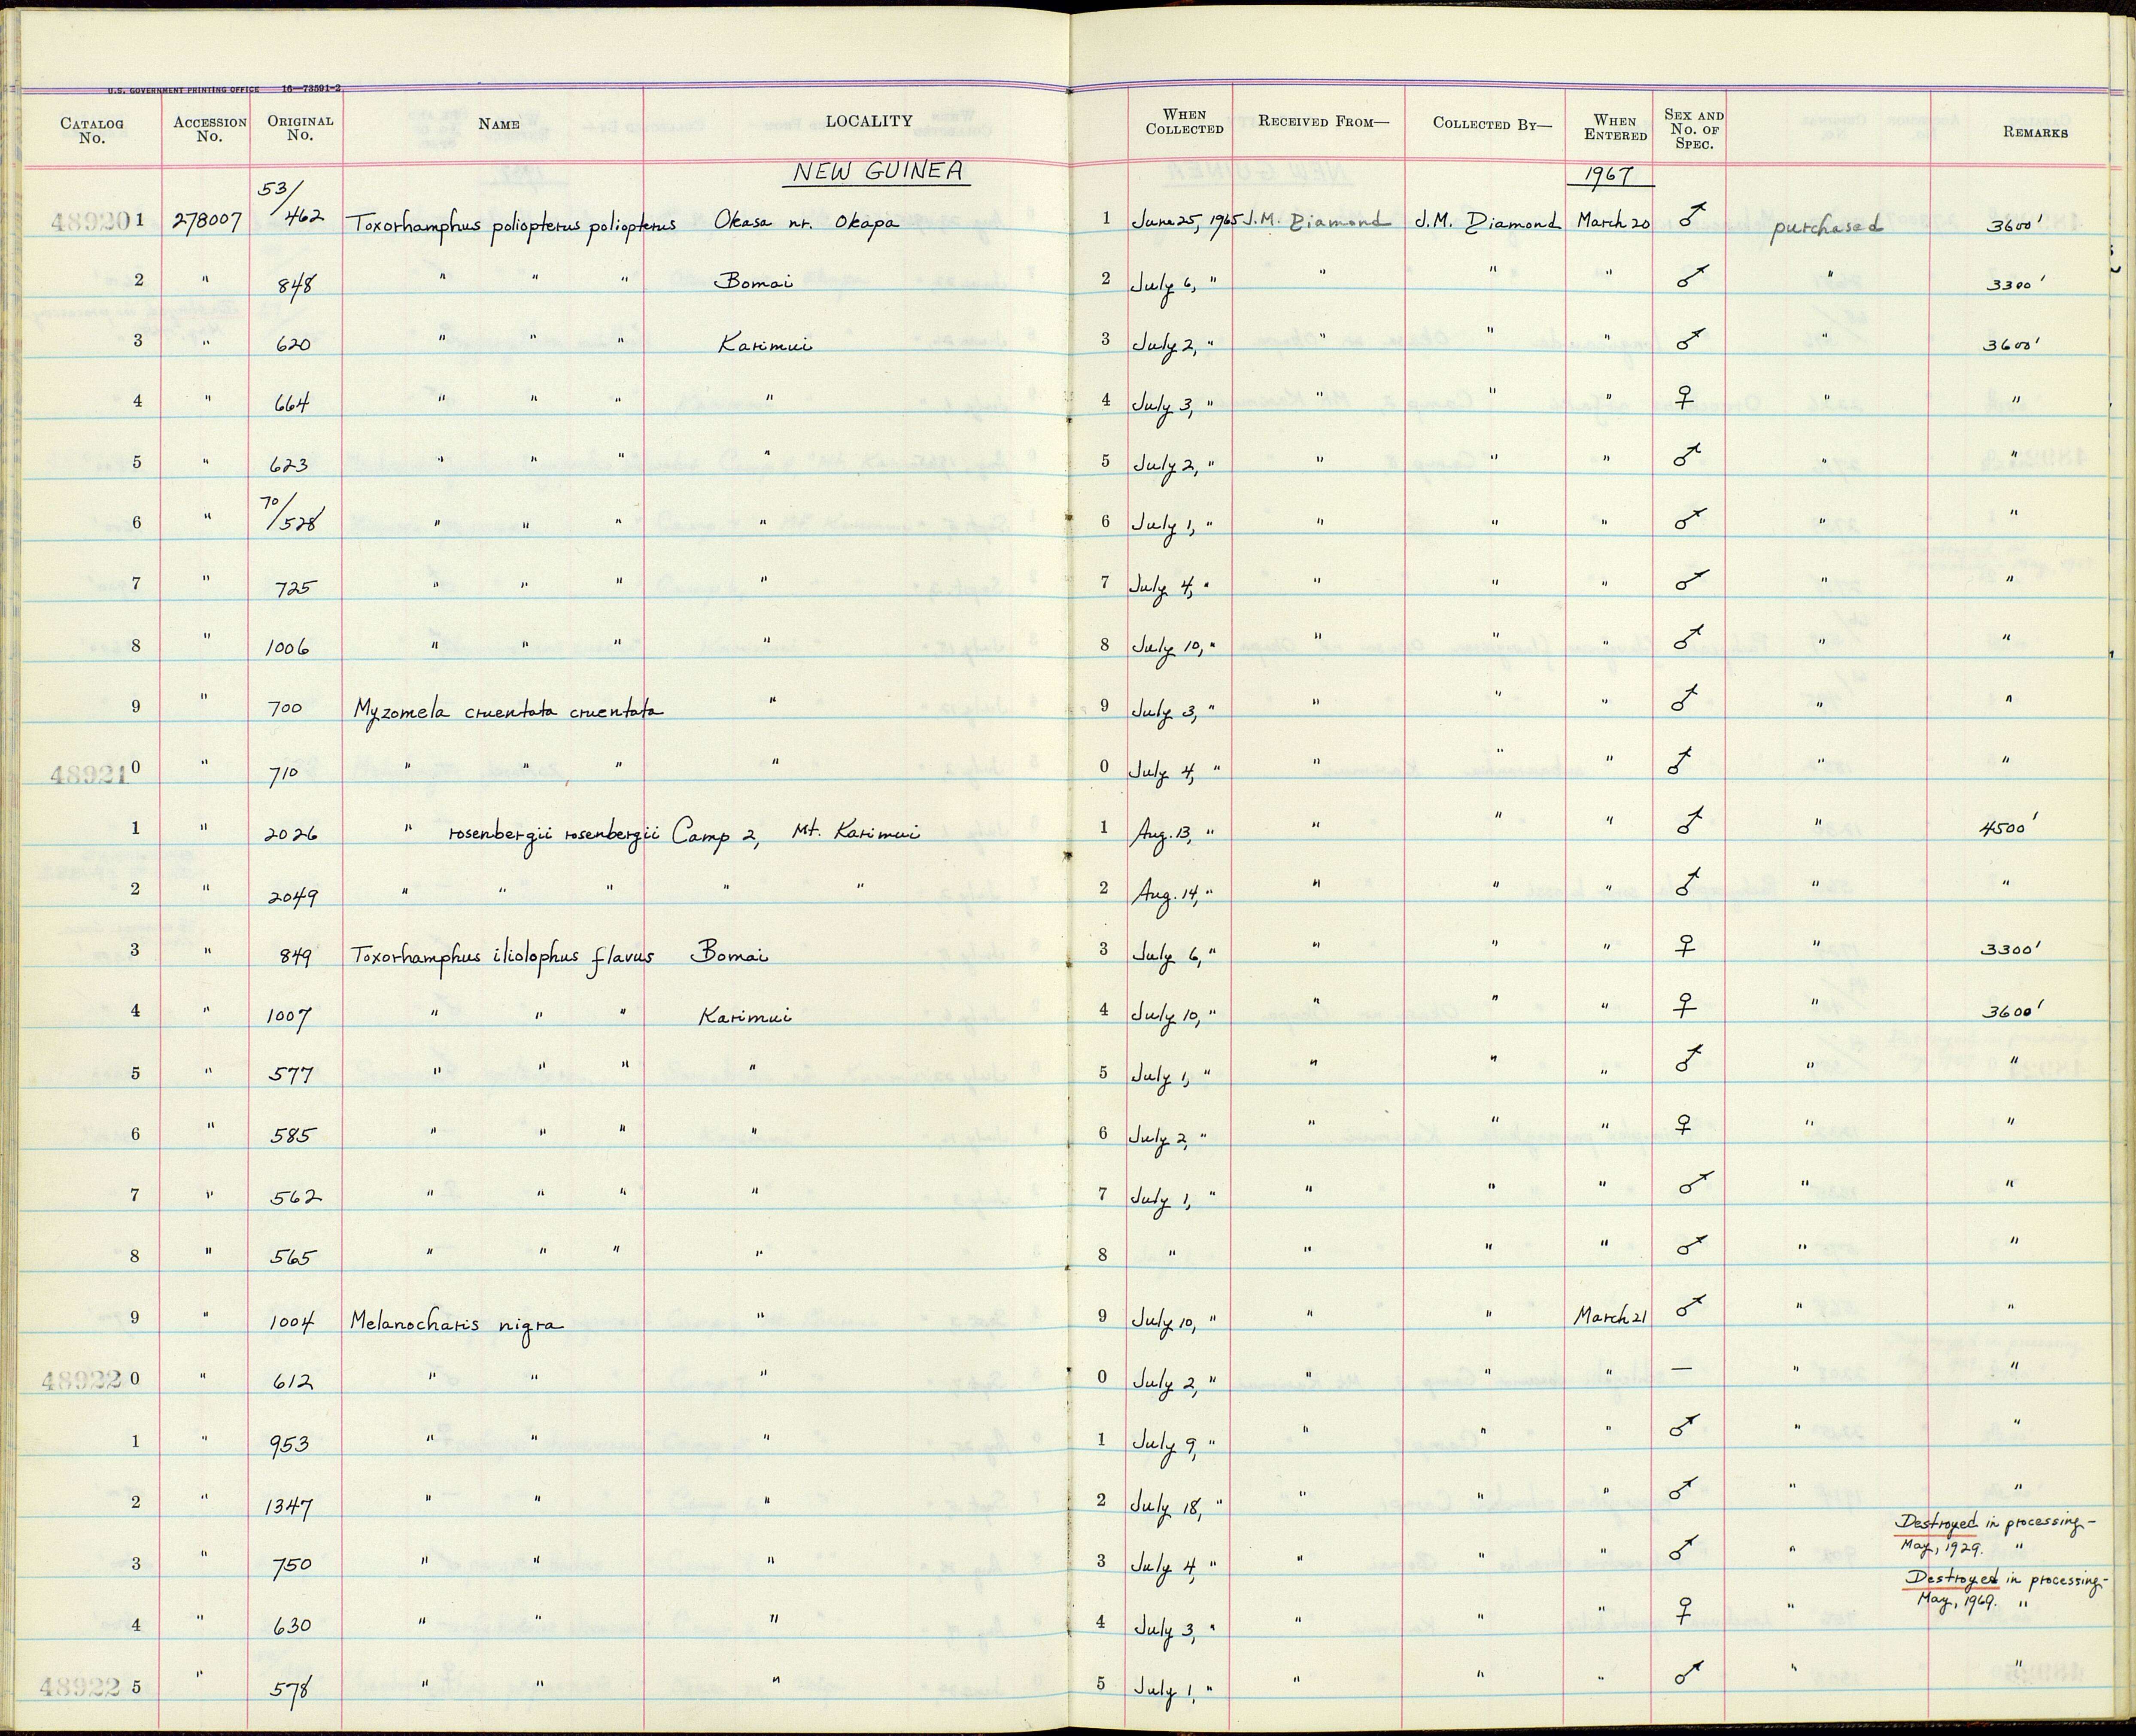 U.S. GOVERNMENT PRINTING OFFICE 16—73591-2
CATALOG No. ACCESSION No. ORIGINAL No. NAME LOCALITY WHEN COLLECTED RECEIVED FROM— COLLECTED BY— WHEN ENTERED SEX AND No. OF SPEC. REMARKS
NEW GUINEA 1967
489201 278007 53/462 Toxorhamphus poliopterus poliopterus Okasa nr. Okapa 1 June 25, 1965 J.M. Diamond J.M. Diamond March 20 ♂ purchased 3600'
2 " 848 " " " Bomai 2 July 6, " " " " ♂ " 3300'
3 " 620 " " " Karimui 3 July 2, " " " " ♂ " 3600'
4 " 664 " " " " 4 July 3, " " " " ♀ " "
5 " 623 " " " " 5 July 2, " " " " ♂ " "
6 " 70/528 " " " " 6 July 1, " " " " ♂ " "
7 " 725 " " " " 7 July 4, " " " " ♂ " "
8 " 1006 " " " " 8 July 10, " " " " ♂ " "
9 " 700 Myzomela cruentata cruentata " 9 July 3, " " " " ♂ " "
489210 " 710 " " " " 0 July 4, " " " " ♂ " "
1 " 2026 " rosenbergii rosenbergii Camp 2, Mt. Karimui 1 Aug. 13, " " " " ♂ " 4500'
2 " 2049 " " " " " 2 Aug. 14, " " " " ♂ " "
3 " 849 Toxorhamphus iliolophus flavus Bomai 3 July 6, " " " " ♀ " 3300'
4 " 1007 " " " Karimui 4 July 10, " " " " ♀ " 3600'
5 " 577 " " " " 5 July 1, " " " " ♂ " "
6 " 585 " " " " 6 July 2, " " " " ♀ " "
7 " 562 " " " " 7 July 1, " " " " ♂ " "
8 " 565 " " " " 8 " " " " ♂ " "
9 " 1004 Melanocharis nigra " 9 July 10, " " " March 21 ♂ " "
489220 " 612 " " " 0 July 2, " " " " — " "
1 " 953 " " " 1 July 9, " " " " ♂ " "
2 " 1347 " " " 2 July 18, " " " " ♂ " "
3 " 750 " " " 3 July 4, " " " " ♂ " Destroyed in processing- May, 1929. "
4 " 630 " " " 4 July 3, " " " " ♀ " Destroyed in processing- May, 1969. "
489225 " 578 " " " 5 July 1, " " " " ♂ " "